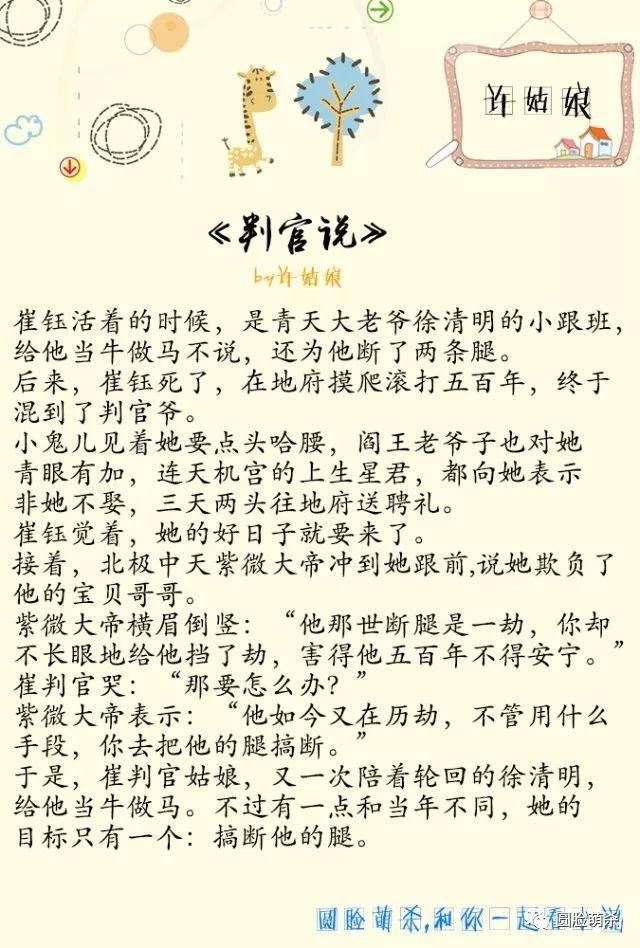 许姑娘
《判官说》
by许姑娘
崔钰活着的时候，是青天大老爷徐清明的小跟班，
给他当牛做马不说，还为他断了两条腿。
后来，崔钰死了，在地府摸爬滚打五百年，终于
混到了判官爷。
小鬼儿见着她要点头哈腰，阎王老爷子也对她
青眼有加，连天机宫的上生星君，都向她表示
非她不娶，三天两头往地府送聘礼。
崔钰觉着，她的好日子就要来了。
接着，北极中天紫微大帝冲到她跟前,说她欺负了
他的宝贝哥哥。
紫微大帝横眉倒竖：“他那世断腿是一劫，你却
不长眼地给他挡了劫，害得他五百年不得安宁。”
崔判官哭：“那要怎么办？”
紫微大帝表示：“他如今又在历劫，不管用什么
手段，你去把他的腿搞断。”
于是，崔判官姑娘，又一次陪着轮回的徐清明，
给他当牛做马。不过有一点和当年不同，她的
目标只有一个：搞断他的腿。
圆脸萌杀,和你一起看小说
圆脸萌杀